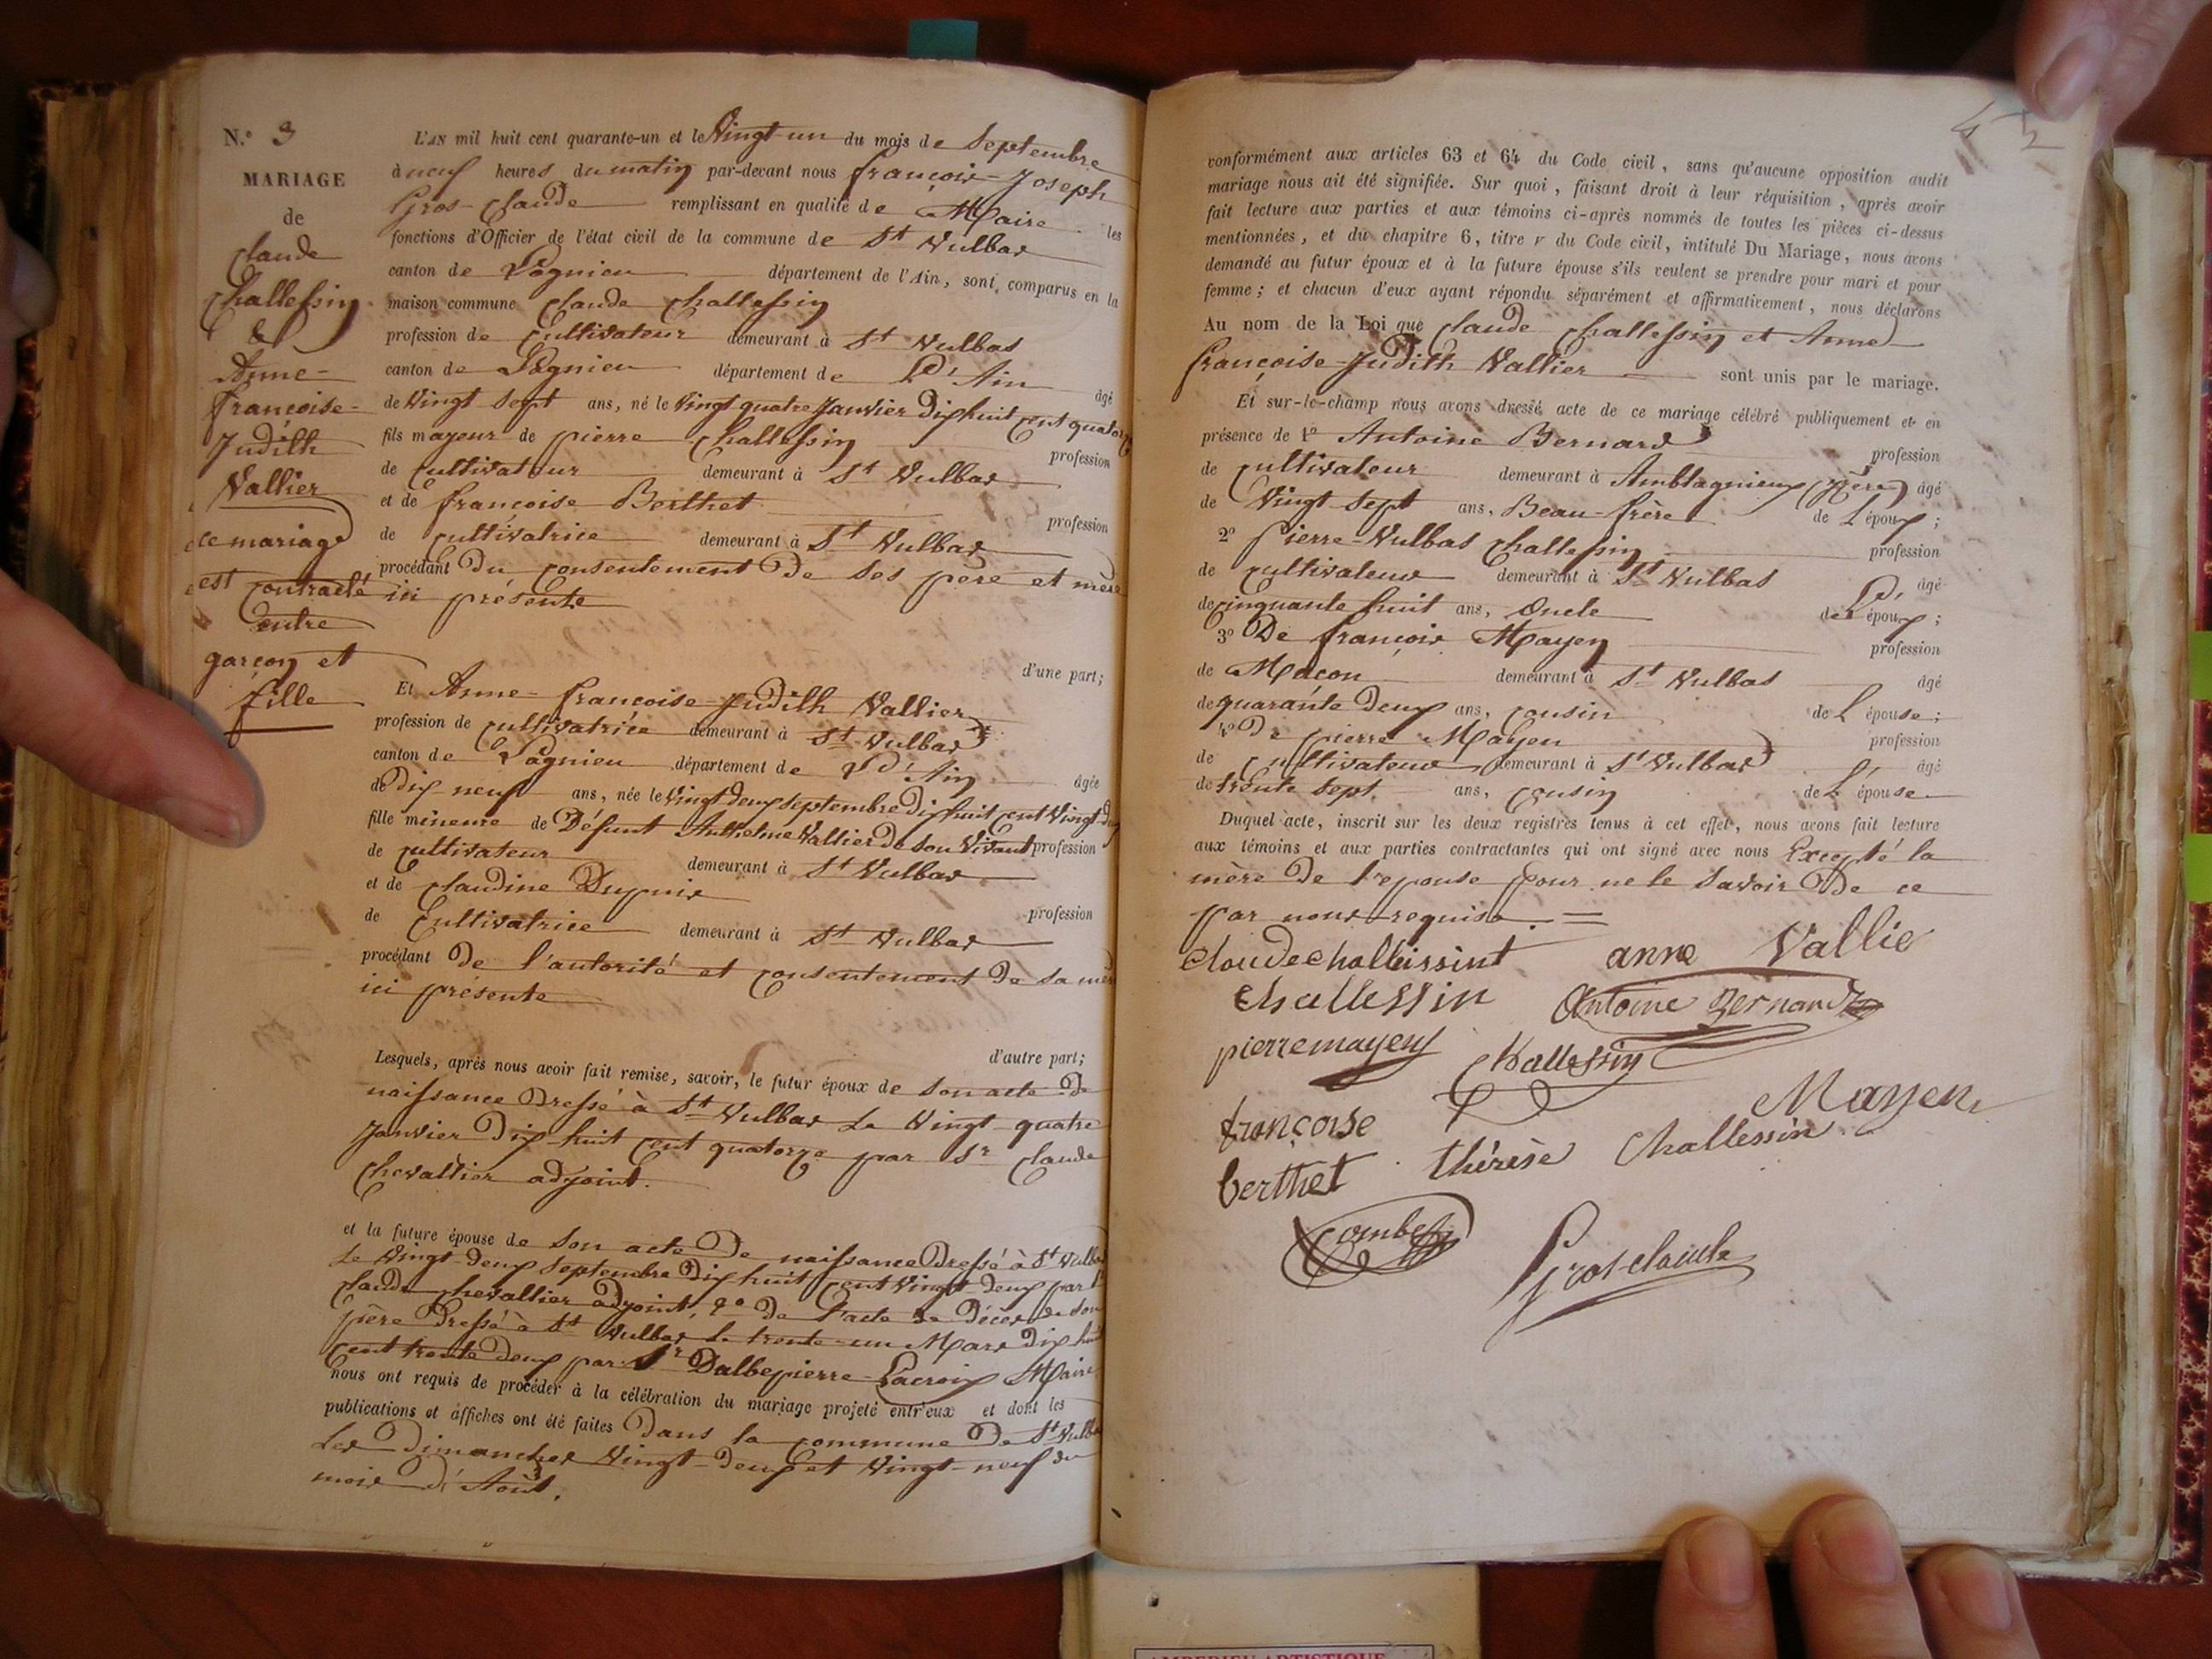 N.º 3
MARIAGE
de
Claude
Challessin
&
Anne-
françoise-
Judith
Vallier
ce mariage
est contracté
entre
garçon et
fille
L'AN mil huit cent quarante-un et le Vingt-un du mois de Septembre
à neuf heures du matin par-devant nous françois-Joseph
Gros-Claude remplissant en qualité de Maire les
fonctions d'Officier de l'état civil de la commune de St Vulbas
canton de Lagnieu département de l'Ain, sont comparus en la
maison commune Claude Challessin
profession de Cultivateur demeurant à St Vulbas
canton de Lagnieu département de L'Ain âgé
de Vingt Sept ans, né le Vingt quatre Janvier dix huit cent quatorze
fils mayeur de pierre Challessin profession
de Cultivateur demeurant à St Vulbas
et de françoise Berthet profession
de cultivatrice demeurant à St Vulbas
procédant du consentement de ses père et mère
ici présents
d'une part;
Et Anne-françoise-Judith Vallier
profession de cultivatrice demeurant à St Vulbas
canton de Lagnieu département de L'Ain âgée
de dix neuf ans, née le Vingt deux septembre dix huit cent Vingt-deux
fille mineure de Défunt Anthelme Vallier de son Vivant profession
de cultivateur demeurant à St Vulbas
et de Claudine Dupuis profession
de Cultivatrice demeurant à St Vulbas
procédant de l'autorité et consentement de sa mère
ici présente
d'autre part;
Lesquels, après nous avoir fait remise, savoir, le futur époux de son acte de
naissance dressé à St Vulbas Le Vingt-quatre
Janvier dix-huit cent quatorze par Sr Claude
Chevallier adjoint.
et la future épouse de son acte de naissance dressé à St Vulbas
Le Vingt-deux septembre dix huit cent Vingt-deux par Sr
Claude Chevallier adjoint, 2º de l'acte de décès de son
père dressé à St Vulbas le trente-un Mars dix huit
cent trente deux par Sr Dalbepierre-Lacroix Maire
nous ont requis de procéder à la célébration du mariage projeté entr'eux et dont les
publications et affiches ont été faites Dans la commune de St Vulbas
Les Dimanches Vingt-deux et Vingt-neuf du
mois d'Août.
conformément aux articles 63 et 64 du Code civil, sans qu'aucune opposition audit
mariage nous ait été signifiée. Sur quoi, faisant droit à leur réquisition, après avoir
fait lecture aux parties et aux témoins ci-après nommés de toutes les pièces ci-dessus
mentionnées, et du chapitre 6, titre V du Code civil, intitulé Du Mariage, nous avons
demandé au futur époux et à la future épouse s'ils veulent se prendre pour mari et pour
femme; et chacun d'eux ayant répondu séparément et affirmativement, nous déclarons
Au nom de la Loi que Claude Challessin et Anne
françoise-Judith Vallier sont unis par le mariage.
Et sur-le-champ nous avons dressé acte de ce mariage célébré publiquement et en
présence de 1º Antoine Bernard profession
de cultivateur demeurant à Amblagnieux (isère) âgé
de Vingt sept ans, Beau-frère de L'époux;
2º Pierre-Vulbas Challessin profession
de cultivateur demeurant à St Vulbas âgé
de cinquante huit ans, oncle de L'époux;
3º De françois Mayen profession
de Maçon demeurant à St Vulbas âgé
de quarante deux ans, cousin de L'épouse;
4º De pierre Mayen profession
de cultivateur demeurant à St Vulbas âgé
de trente sept ans, cousin de L'épouse
Duquel acte, inscrit sur les deux registres tenus à cet effet, nous avons fait lecture
aux témoins et aux parties contractantes qui ont signé avec nous Excepté la
mère de l'epouse pour ne le Savoir de ce
par nous requise.
Claude challeissint anne Vallie
Challessin Antoine Bernard
pierre mayen Challessin
Mayen
françoise
berthet thérèse Challessin
Combet
Gros-claude
AMBERIEU ARTISTIQUE